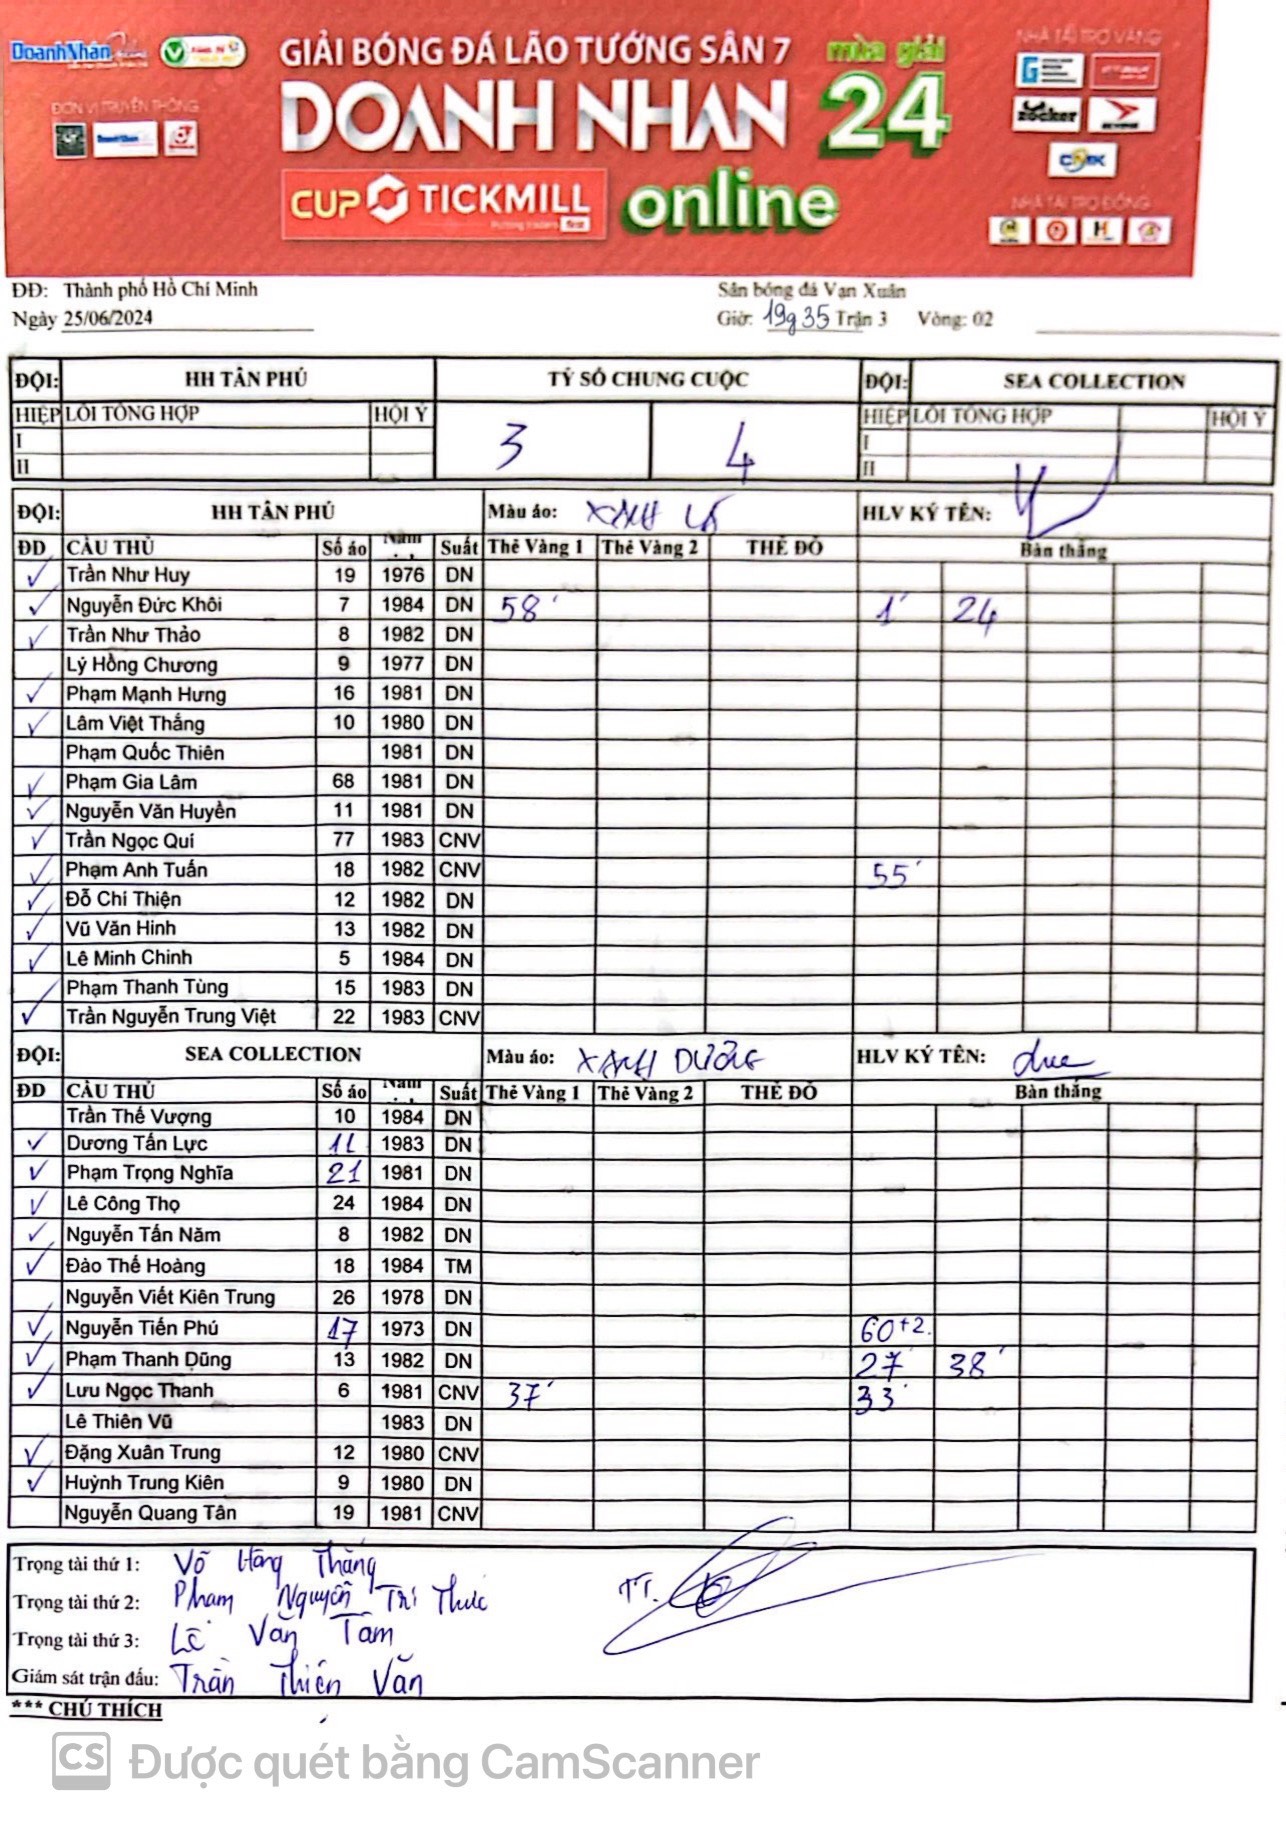 DoanhNhân
GIẢI BÓNG ĐÁ LÃO TƯỚNG SÂN 7
mùa giải
NHÀ TÀI TRỢ VÀNG
ĐƠN VỊ TRUYỀN THÔNG
DOANH NHÂN
24
zocker
CMK
CUP TICKMILL
online
NHÀ TÀI TRỢ ĐỒNG
ĐĐ: Thành phố Hồ Chí Minh
Sân bóng đá Vạn Xuân
Ngày 25/06/2024
Giờ: 19g35 Trận 3 Vòng: 02
ĐỘI: HH TÂN PHÚ TỶ SỐ CHUNG CUỘC ĐỘI: SEA COLLECTION
HIỆP LỖI TỔNG HỢP HỘI Ý 3 4 HIỆP LỖI TỔNG HỢP HỘI Ý
I I
II II
ĐỘI: HH TÂN PHÚ Màu áo: XANH LÁ HLV KÝ TÊN:
ĐD CẦU THỦ Số áo Năm Suất Thẻ Vàng 1 Thẻ Vàng 2 THẺ ĐỎ Bàn thắng
✓ Trần Như Huy 19 1976 DN
✓ Nguyễn Đức Khôi 7 1984 DN 58' 1' 24
✓ Trần Như Thảo 8 1982 DN
Lý Hồng Chương 9 1977 DN
✓ Phạm Mạnh Hưng 16 1981 DN
✓ Lâm Việt Thắng 10 1980 DN
Phạm Quốc Thiên 1981 DN
✓ Phạm Gia Lâm 68 1981 DN
✓ Nguyễn Văn Huyền 11 1981 DN
✓ Trần Ngọc Qui 77 1983 CNV
✓ Phạm Anh Tuấn 18 1982 CNV 55'
✓ Đỗ Chí Thiện 12 1982 DN
✓ Vũ Văn Hinh 13 1982 DN
✓ Lê Minh Chinh 5 1984 DN
Phạm Thanh Tùng 15 1983 DN
✓ Trần Nguyễn Trung Việt 22 1983 CNV
ĐỘI: SEA COLLECTION Màu áo: XANH DƯƠNG HLV KÝ TÊN:
ĐD CẦU THỦ Số áo Năm Suất Thẻ Vàng 1 Thẻ Vàng 2 THẺ ĐỎ Bàn thắng
Trần Thế Vượng 10 1984 DN
✓ Dương Tấn Lực 11 1983 DN
✓ Phạm Trọng Nghĩa 21 1981 DN
✓ Lê Công Thọ 24 1984 DN
✓ Nguyễn Tấn Năm 8 1982 DN
✓ Đào Thế Hoàng 18 1984 TM
Nguyễn Viết Kiên Trung 26 1978 DN
✓ Nguyễn Tiến Phú 17 1973 DN 60+2.
✓ Phạm Thanh Dũng 13 1982 DN 27' 38'
✓ Lưu Ngọc Thanh 6 1981 CNV 37' 33'
Lê Thiên Vũ 1983 DN
✓ Đặng Xuân Trung 12 1980 CNV
✓ Huỳnh Trung Kiên 9 1980 DN
Nguyễn Quang Tân 19 1981 CNV
Trọng tài thứ 1: Võ Hồng Thắng
Trọng tài thứ 2: Phạm Nguyễn Tri Thức
TT.
Trọng tài thứ 3: Lê Văn Tâm
Giám sát trận đấu: Trần Thiên Văn
*** CHÚ THÍCH
CS Được quét bằng CamScanner